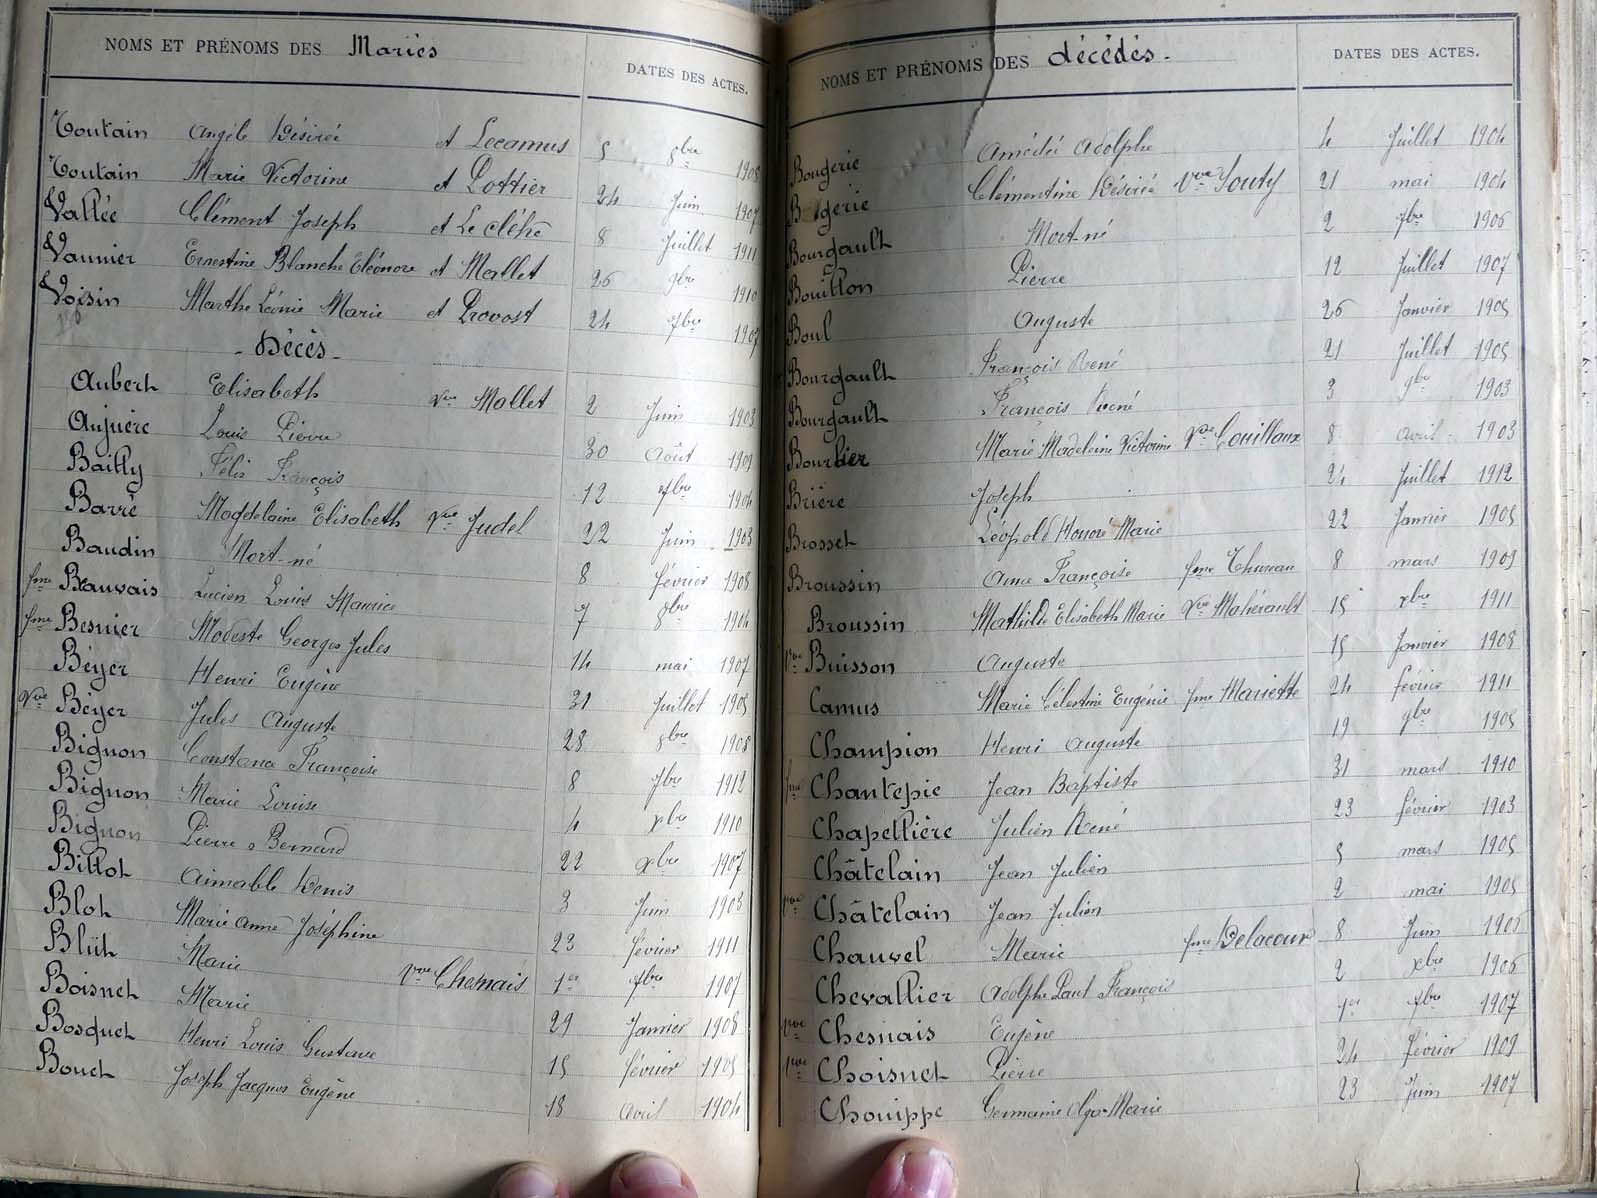 NOMS ET PRÉNOMS DES Mariés DATES DES ACTES.
Toutain Angèle Désirée et Lecamus 5 8bre 1908
Toutain Marie Victorine et Pottier 24 Juin 1907
Vallée Clément Joseph et Le cléhe 8 Juillet 1911
Vaunier Ernestine Blanche Eléonore et Mallet 26 9bre 1910
Voisin Marthe Léonie Marie et Provost 24 7bre 1907
- Décès -
Aubert Elisabeth Vve Mallet 2 Juin 1903
Aujuère Louis Pierre 30 Août 1909
Bailly Félix François 12 7bre 1904
Barré Magdelaine Elisabeth Vve Judel 22 Juin 1903
Baudin Mort-né 8 février 1908
fme Beauvais Lucien Louis Maurice 7 8bre 1904
fme Besnier Modeste Georges Jules 14 mai 1907
Béyer Henri Eugène 31 Juillet 1905
Vve Béyer Jules Auguste 28 8bre 1908
Bignon Constance Françoise 8 7bre 1912
Bignon Marie Louise 4 xbre 1910
Bignon Pierre Bernard 22 xbre 1907
Billot Aimable Denis 3 Juin 1903
Blot Marie Anne Joséphine 23 février 1911
Blüt Marie Vve Chesnais 1er 7bre 1907
Boisnet Marie 29 Janvier 1908
Bosquet Henri Louis Gustave 15 février 1905
Bouet Joseph Jacques Eugène 18 Avril 1904
NOMS ET PRÉNOMS DES décédés - DATES DES ACTES.
Bougerie Amédée Adolphe 4 Juillet 1904
B gerie Clémentine Désirée Vve Jouty 21 mai 1904
Bourgault Mort-né 2 7bre 1906
Bouillon Pierre 12 Juillet 1907
Boul Auguste 26 Janvier 1905
Bourgault François René 21 Juillet 1905
Bourgault François René 3 9bre 1903
Bourlier Marie Madeleine Victorine Vve Couillaux 8 avril 1903
Brière Joseph 24 Juillet 1912
Brosset Léopold Honoré Marie 22 Janvier 1905
Broussin Anna Françoise fme Thureau 8 mars 1909
Broussin Mathilde Elisabeth Marie Vve Mahérault 15 xbre 1911
Vve Buisson Auguste 15 Janvier 1908
Camus Marie Célestine Eugénie fme Mariette 24 février 1911
Champion Henri Auguste 19 9bre 1905
fme Chantepie Jean Baptiste 31 mars 1910
Chapellière Julien René 23 février 1903
Châtelain Jean Julien 5 mars 1905
Vve Châtelain Jean Julien 2 mai 1905
Chauvel Marie fme Delacour 8 Juin 1906
Chevallier Adolphe Paul François 2 xbre 1906
Vve Chesnais Eugène 1er 7bre 1907
Vve Choisnet Pierre 24 février 1909
Chouippe Germaine Olga Marie 23 Juin 1907